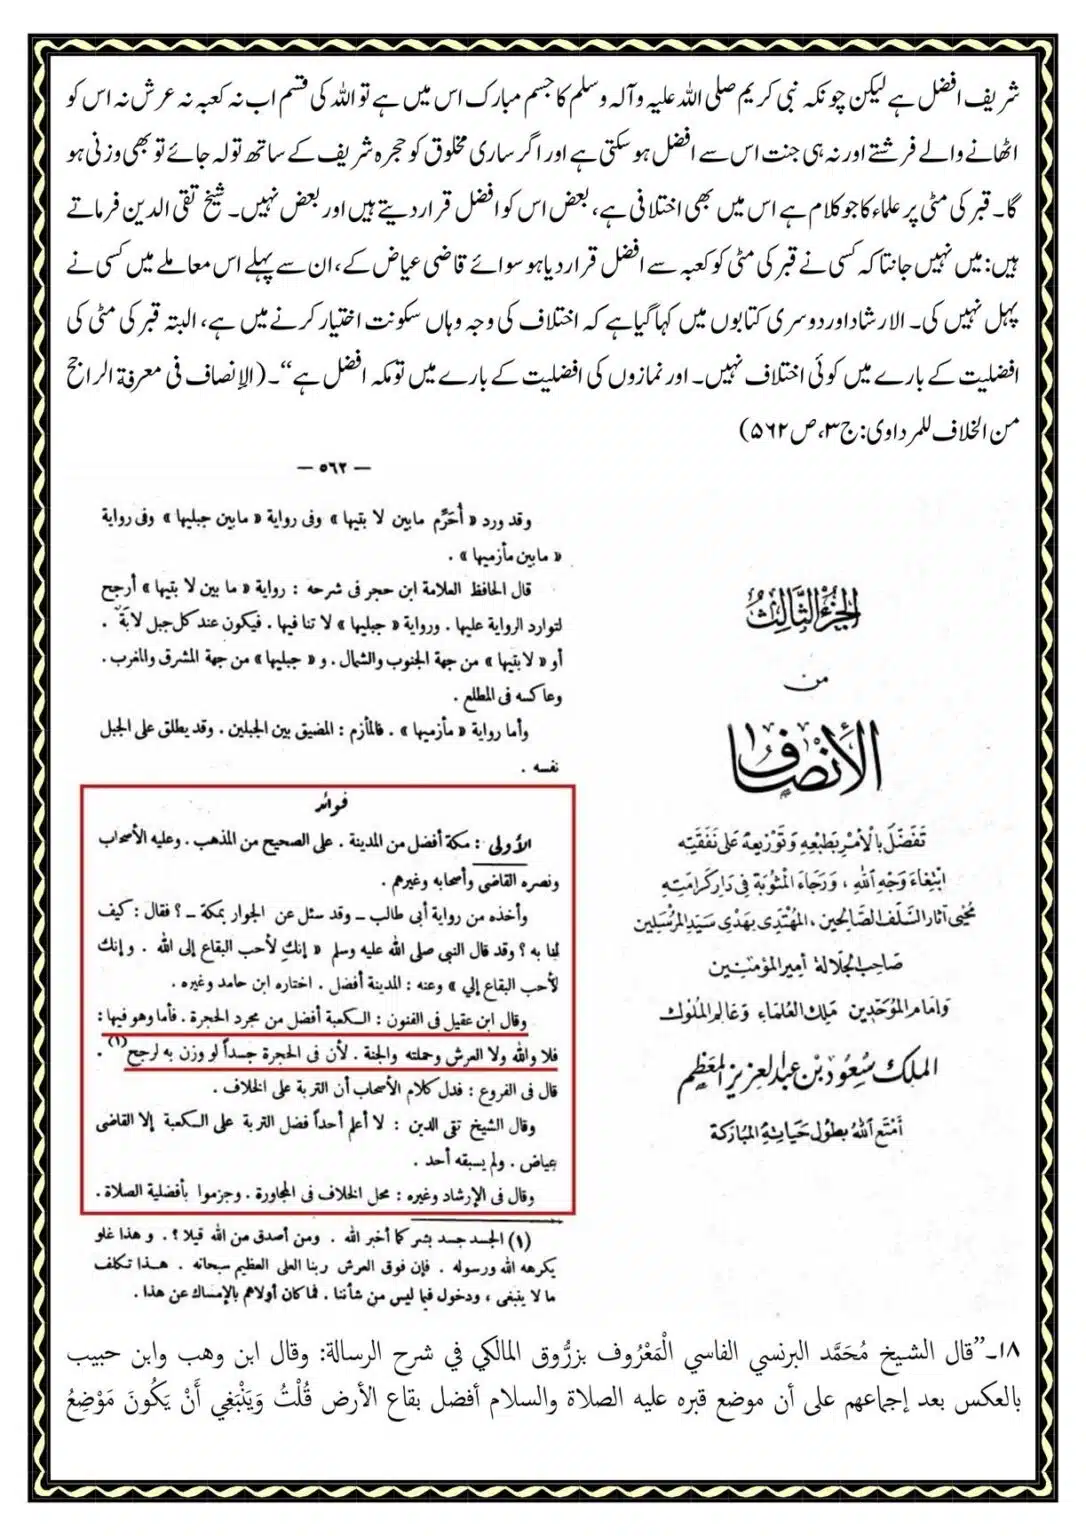 شریف افضل ہے لیکن چونکہ نبی کریم صلی اللہ علیہ وآلہ وسلم کا جسم مبارک اس میں ہے تو اللہ کی قسم اب نہ کعبہ نہ عرش نہ اس کو
اٹھانے والے فرشتے اور نہ ہی جنت اس سے افضل ہو سکتی ہے اور اگر ساری مخلوق کو حجرہ شریف کے ساتھ تولہ جائے تو بھی وزنی ہو
گا۔ قبر کی مٹی پر علماء کا جو کلام ہے اس میں بھی اختلافی ہے، بعض اس کو افضل قرار دیتے ہیں اور بعض نہیں۔ شیخ تقی الدین فرماتے
ہیں: میں نہیں جانتا کہ کسی نے قبر کی مٹی کو کعبہ سے افضل قرار دیا ہو سوائے قاضی عیاض کے، ان سے پہلے اس معاملے میں کسی نے
پہل نہیں کی۔ الارشاد اور دوسری کتابوں میں کہا گیا ہے کہ اختلاف کی وجہ وہاں سکونت اختیار کرنے میں ہے، البتہ قبر کی مٹی کی
افضلیت کے بارے میں کوئی اختلاف نہیں۔ اور نمازوں کی افضلیت کے بارے میں تو مکہ افضل ہے“۔ (الإنصاف فی معرفة الراجح
من الخلاف للمرداوی: ج۳، ص۵۶۲)
— ٥٦٢ —
وقد ورد « أُحَرِّم مابين لا بتيها » وفى رواية « مابين جبليها » وفى رواية
« مابين مأزميها » .
قال الحافظ العلامة ابن حجر فى شرحه : رواية « ما بين لا بتيها » أرجح
لتوارد الرواية عليها . ورواية « جبليها » لا تنافيها . فيكون عند كل جبل لابَة .
أو « لابتيها » من جهة الجنوب والشمال . و « جبليها » من جهة المشرق والمغرب .
وعاكسه فى المطلع .
وأما رواية « مأزميها » . فالمأزم : المضيق بين الجبلين . وقد يطلق على الجبل
نفسه .
فوائد
الأولى : مكة أفضل من المدينة . على الصحيح من المذهب . وعليه الأصحاب
ونصره القاضى وأصحابه وغيرهم .
وأخذه من رواية أبى طالب ــ وقد سئل عن الجوار بمكة ــ ؟ فقال : كيف
لنا به ؟ وقد قال النبى صلى الله عليه وسلم « إنكِ لأحب البقاع إلى الله . وإنك
لأحب البقاع إلي » وعنه : المدينة أفضل . اختاره ابن حامد وغيره .
وقال ابن عقيل فى الفنون : الكعبة أفضل من مجرد الحجرة . فأما وهو فيها :
فلا والله ولا العرش وحملته والجنة . لأن فى الحجرة جسداً لو وزن به لرجح (١) .
قال فى الفروع : فدل كلام الأصحاب أن التربة على الخلاف .
وقال الشيخ تقى الدين : لا أعلم أحداً فضل التربة على الكعبة إلا القاضى
عياض . ولم يسبقه أحد .
وقال فى الإرشاد وغيره : محل الخلاف فى المجاورة . وجزموا بأفضلية الصلاة .
(١) الجسد جسد بشر كما أخبر الله . ومن أصدق من الله قيلا ؟ . وهذا غلو
يكرهه الله ورسوله . فإن فوق العرش ربنا العلى العظيم سبحانه . هذا تكلف
ما لا ينبغى ، ودخول فيما ليس من شأننا . فما كان أولاهم بالإمساك عن هذا .
الجُزءُ الثَّالِثُ
من
الأنصاف
تَفَضَّلَ بالأمْرِ بطَبْعِهِ وَتَوْزيعِهِ عَلى نَفَقَتِه
ابْتِغاءَ وَجْهِ اللهِ ، وَرَجَاءَ المثُوبَةِ فى دَارِ كَرامَتِه
مُحْيى آثارِ السَّلَفِ الصَّالحين ، المُهْتَدِى بهَدْىِ سَيِّدِ المُرْسَلين
صَاحِبِ الجَلالةِ أميرِ المؤمنين
وَامَامِ الموَحّدِين مَلِكِ العُلَمَاءِ وَعَالِمِ المُلُوك
الملك سُعُود بن عبد العزيز المعظّم
أمْتَعَ اللهُ بطُولِ حَياتِهِ المبَارَكة
۱۸۔”قال الشيخ مُحَمَّد البرنسي الفاسي الْمَعْرُوف بزرُّوق المالكي في شرح الرسالة: وقال ابن وهب وابن حبيب
بالعكس بعد إجماعهم على أن موضع قبره عليه الصلاة والسلام أفضل بقاع الأرض قُلْتُ وَيَنْبَغِي أَنْ يَكُونَ مَوْضِعُ